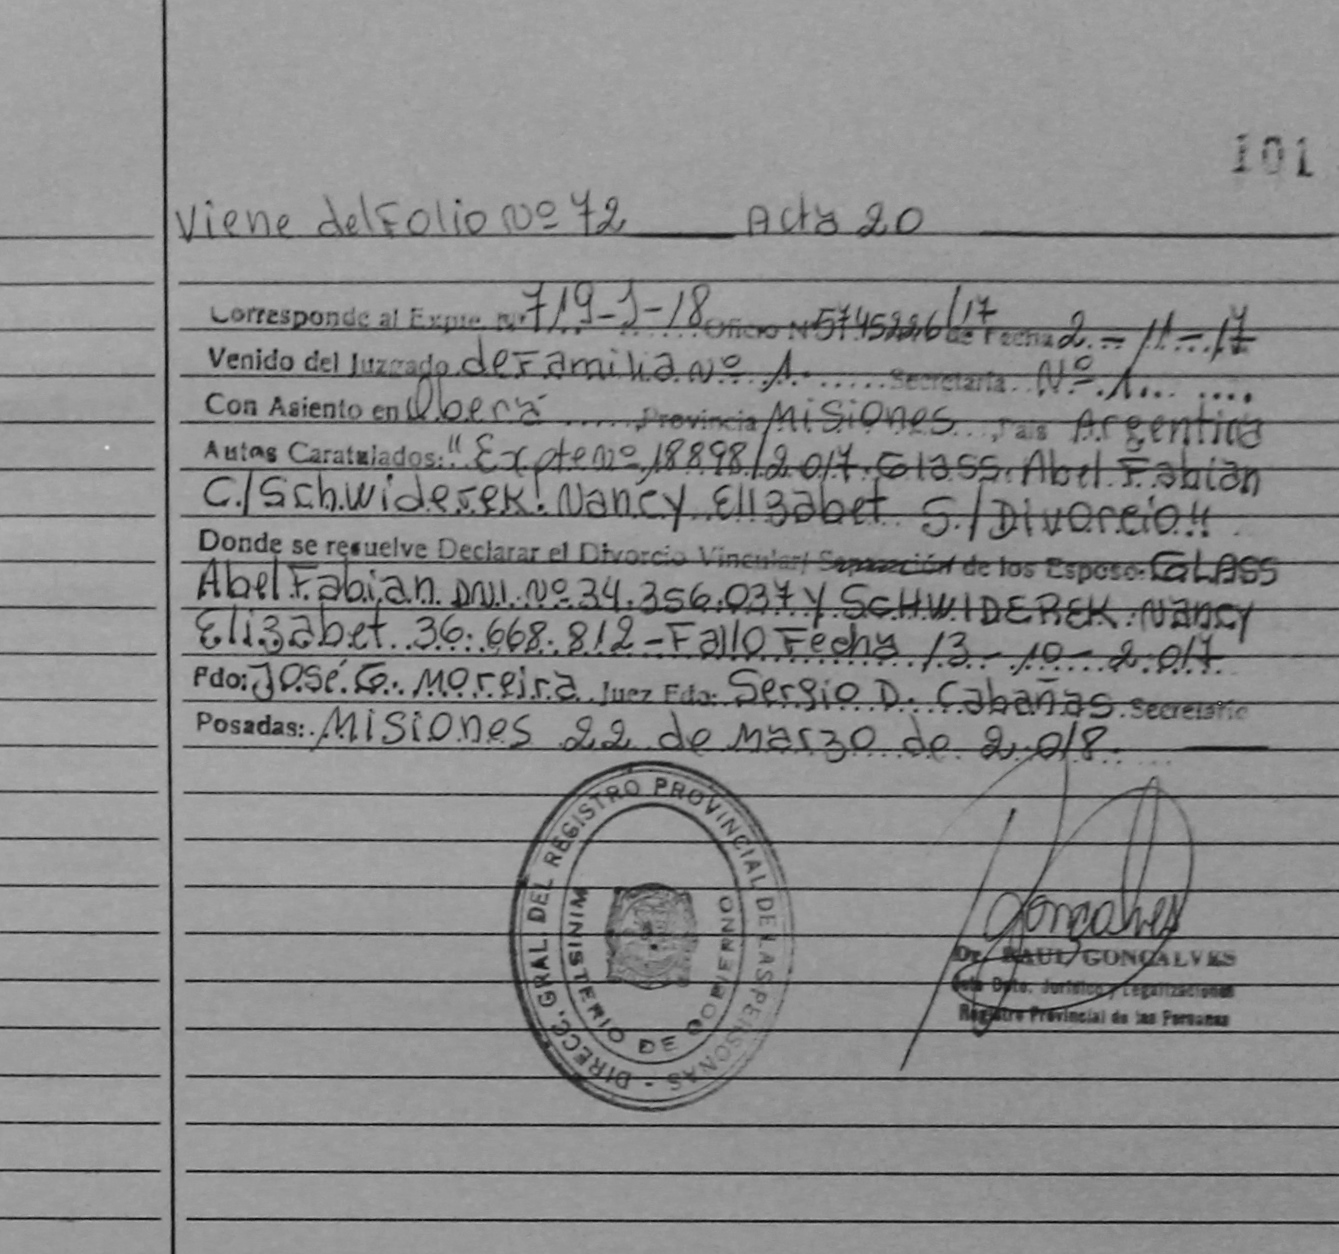 101
Viene del Folio Nº 72 Acta 20
Corresponde al Expte. Nº 719-J-18 Oficio Nº 5745226/17 de Fecha 2.-11-17
Venido del Juzgado de Familia Nº 1. Secretaría Nº 1
Con Asiento en Oberá Provincia Misiones País Argentina
Autos Caratulados: "Expte nº 18898/2017. Glass. Abel Fabian
C./ Schwiderek. Nancy Elizabet S./ Divorcio"
Donde se resuelve Declarar el Divorcio Vincular/ Separación de los Esposo: GLASS
Abel Fabian DNI. Nº 34.356.037 y SCHWIDEREK. Nancy
Elizabet 36.668.812 - Fallo Fecha 13-10-2017
Fdo: José G. Moreira Juez Fdo: Sergio D. Cabañas Secretario
Posadas: Misiones 22 de Marzo de 2018.
DIRECC. GRAL. DEL REGISTRO PROVINCIAL DE LAS PERSONAS -
MINISTERIO DE GOBIERNO
Gonçalves
Dr. RAUL GONÇALVES
Jefe Dpto. Jurídico y Legalizaciones
Registro Provincial de las Personas